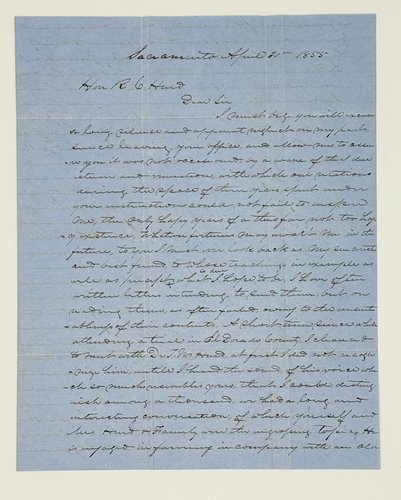 Sacramento April 20th 1855
Hon R. C. Hurd
Dear Sir
I must beg you will excuse
so long silence and apparent neglect on my part
since leaving your office, and allow me to assure
you it was not occasioned by a want of the
esteem and veneration, with which our relations
during the space of three years spent under
your instructions could not fail to inspire
me, the only happy years of a thus far not too happy
existence. Whatever fortune may await me in the
future, to you I must ever look back as my sincerest
and best friend, to whose teachings in example as
well as precept is due what I hope to be. I have often
written letters intending to send them, but on
reading them, as often failed owing to the
of their contents. A short time since while
attending a trial in El Dorado County, I chanced
to meet with Dr J. W. Hurd, at first I did not recog
nize him, until I heard the sound of his voice whi
ch so much resembles yours, that I could disting
uish among a thousand, we had a long and
interesting conversation of which yourself and
Mrs Hurd & Family were the engrossing topics. He
is engaged in farming in company with an old